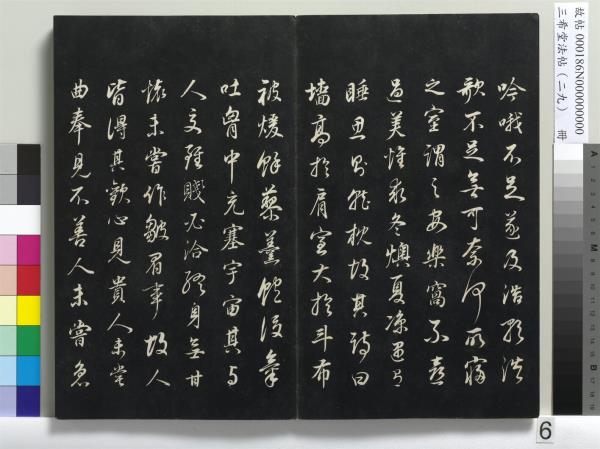 吟哦不足遂及浩歌浩
歌不足無可奈何所寢
之室謂之安樂窩不喜
過美惟求冬燠夏涼遇有
睡思則就枕故其詩曰
墻高於肩室大於斗布
被煖餘藜羹飽後氣
吐胷中充塞宇宙其與
人交雖賤必洽終身無甘
懷未嘗作皺眉事故人
皆得其歡心見貴人未嘗
曲奉見不善人未嘗急
故帖 000186N000000000 冊
三希堂法帖(二九)
6